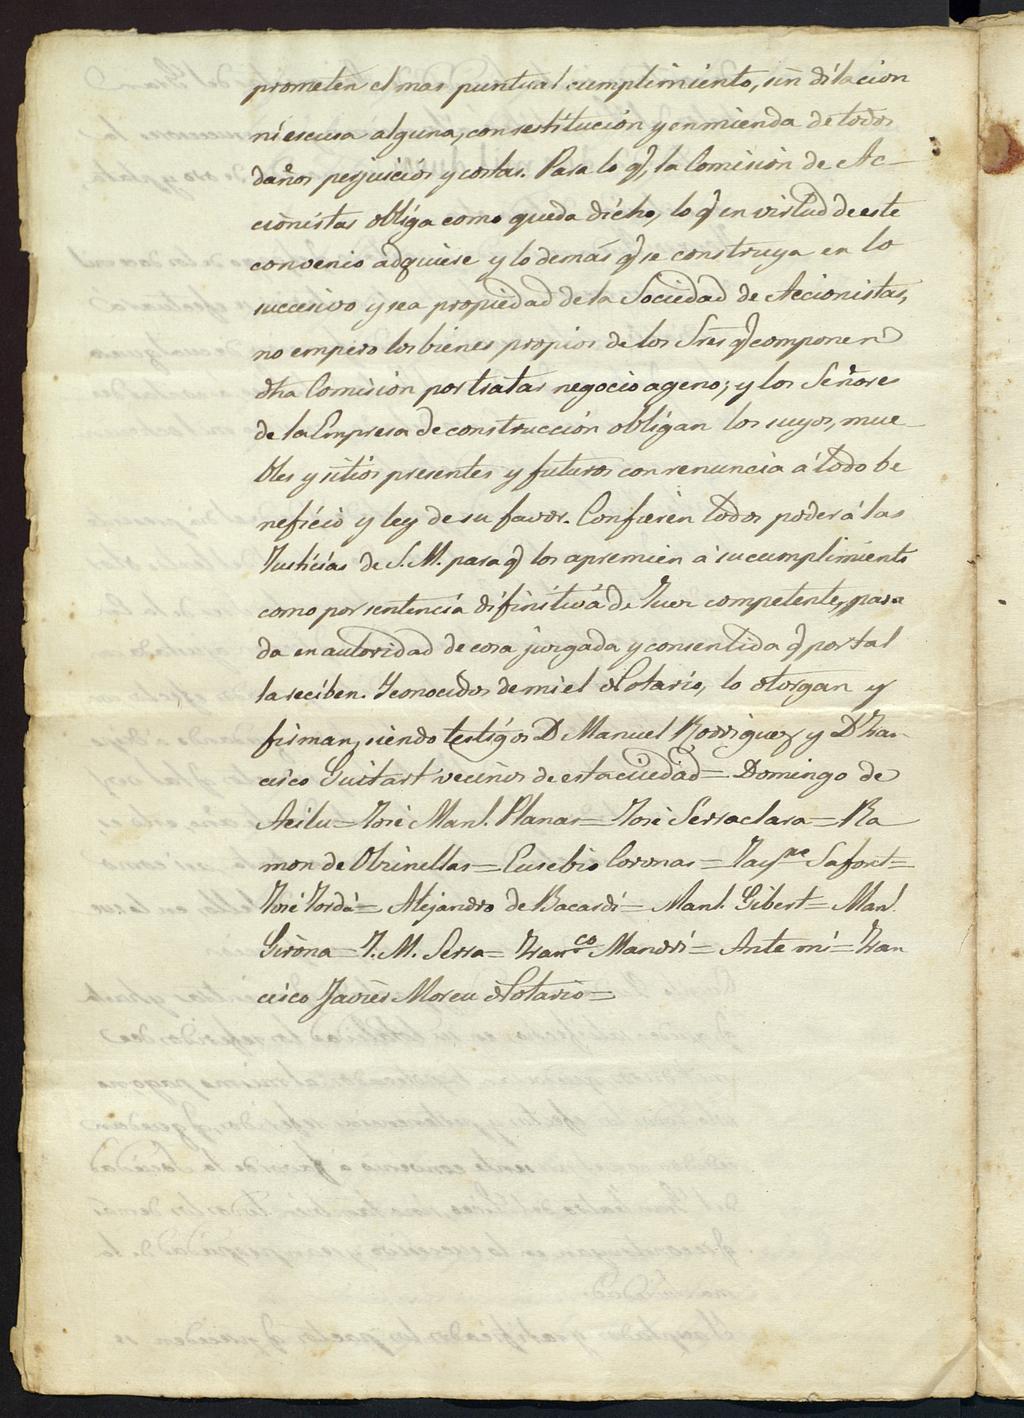 prometen el mas puntual cumplimiento, sin dilacion
ni escusa alguna, con restitución y enmienda de todos
daños perjuicios y costas. Para lo q.e la Comision de Ac-
cionistas obliga como queda dicho, lo q.e en virtud de este
convenio adquiere y lo demás q.e se construya en lo
succesivo y sea propiedad de la Sociedad de Accionistas,
no empero los bienes propios de los Sres q.e componen
dha Comision por tratar negocio ageno; y los Señores
de la Empresa de construcción obligan los suyos, mue-
bles y sitios presentes y futuros con renuncia á todo be
neficio y ley de su favor. Confieren todos poder á las
Justicias de S. M. para q.e los apremien á su cumplimiento
como por sentencia difinitiva de Juez competente, pasa
da en autoridad de cosa juzgada y consentida q.e por tal
la reciben. Y conocidos de mi el Notario, lo otorgan y
firman, siendo testigos D Manuel Rodriguez y D Fran-
cisco Guitart vecinos de esta ciudad = Domingo de
= José Manl. Planas = José Serraclara = Ra
mon de = Eusebio Coronas = Jayme Safont =
José Jordá = Alejandro de Bacardi = Manl. Gibert = Manl.
Girona = J. M. Serra = Franco Mandri = Ante mi = Fran
cisco Javier Moreu Notario =